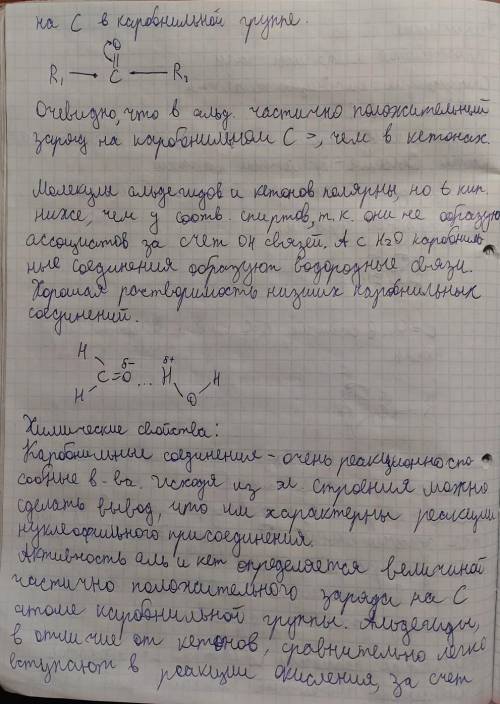 на С в карбонильной группе.
O
R₁ → C ← R₂
Очевидно, что в альд. частично положительный
заряд на карбонильном С >, чем в кетонах.
Молекулы альдегидов и кетонов полярны, но t кип.
ниже, чем у соотв. спиртов, т.к. они не образую
ассоциатов за счет ОН связей. А с H₂O карбониль
ные соединения образуют водородные связи.
Хорошая растворимость низших карбонильных
соединений.
H δ- δ+
C=O ... H H
H O
Химические свойства:
Карбонильные соединения - очень реакционноспо
собные в-ва. исходя из эл. строения можно
сделать вывод, что им характерны реакции
нуклеофильного присоединения.
Активность аль и кет определяется величиной
частично положительного заряда на С
атоме карбонильной группы. Альдегиды,
в отличие от кетонов, сравнительно легко
вступают в реакции окисления, за счет